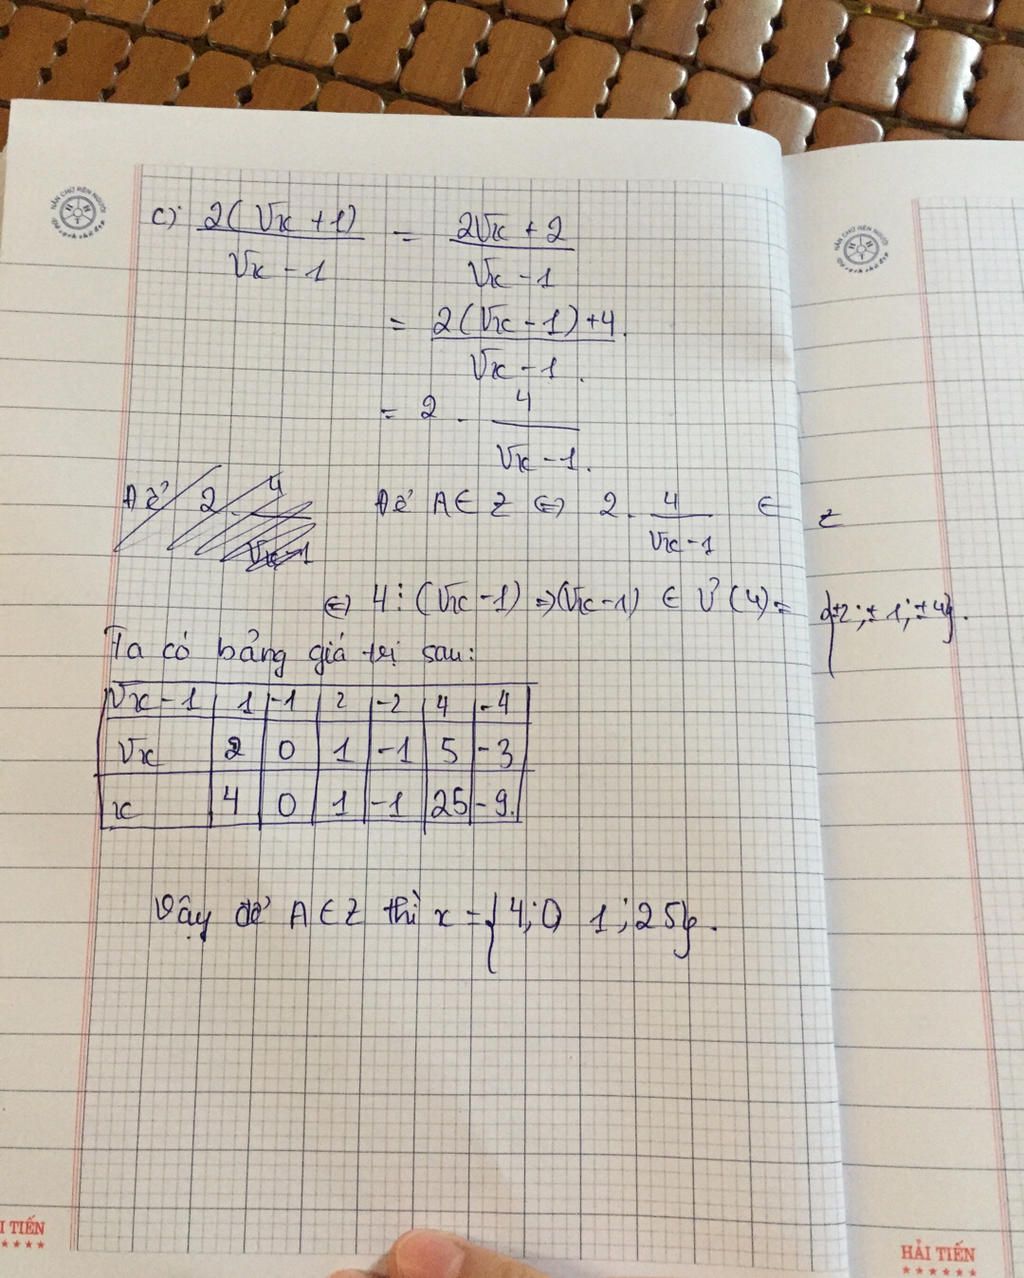 c) 2(√x + 1) / √x - 1 = 2√x + 2 / √x - 1
= 2(√x - 1) + 4 / √x - 1
= 2 - 4 / √x - 1
Để 2 - 4 / √x - 1 Để A ∈ Z ⇔ 2 - 4 / √x - 1 ∈ Z
⇔ 4 ⋮ (√x - 1) ⇒ (√x - 1) ∈ Ư (4) = {±2; ±1; ±4}.
Ta có bảng giá trị sau:
√x - 1 1 -1 2 -2 4 -4
√x 2 0 1 -1 5 -3
x 4 0 1 -1 25 -9.
Vậy để A ∈ Z thì x = {4; 0 1; 25}.
HẢI TIẾN
I TIẾN